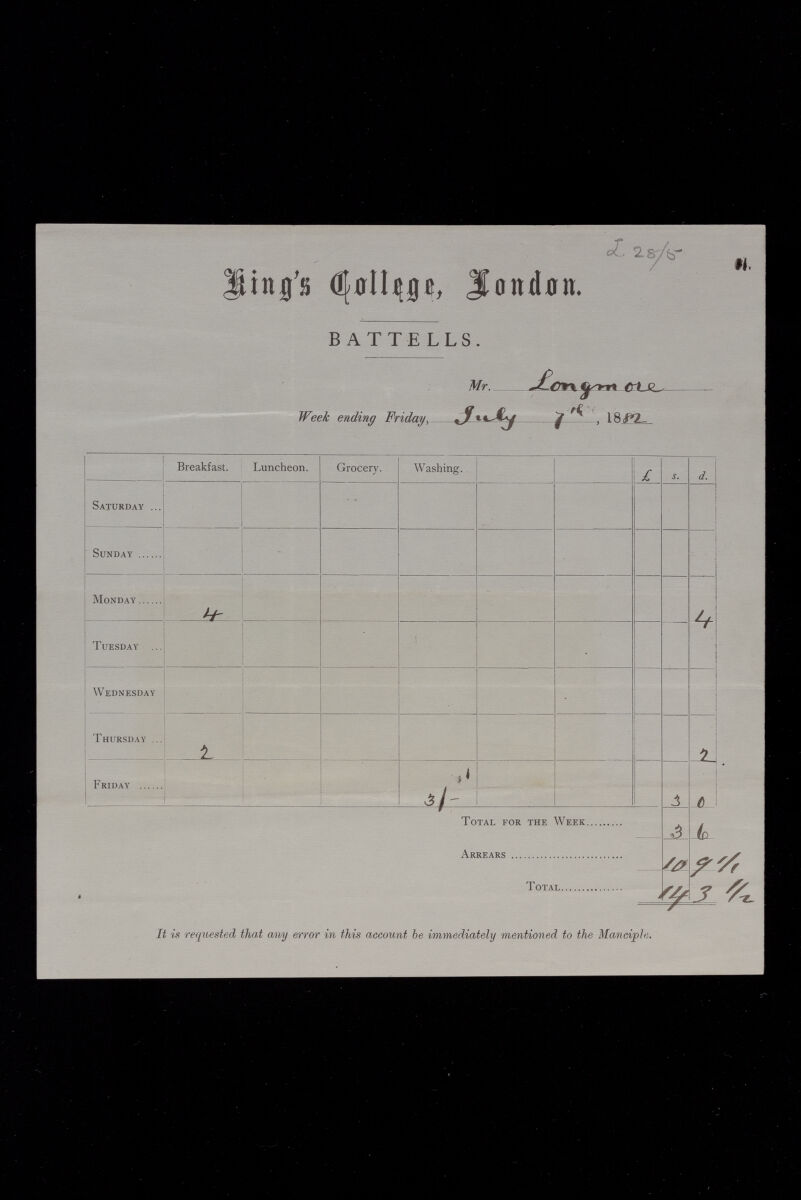 L. 28/5
King's College, London.
BATTELLS.
Mr. Longmore
Week ending Friday, July 7th, 1882
Breakfast. Luncheon. Grocery. Washing. £ s. d.
SATURDAY ...
SUNDAY ......
MONDAY...... 4 4
TUESDAY ...
WEDNESDAY
THURSDAY ... 2 2
FRIDAY ...... 3/- 3 0
TOTAL FOR THE WEEK......... 3 6
ARREARS ........................... 10 9 1/2
TOTAL............... 14 3 1/2
It is requested that any error in this account be immediately mentioned to the Manciple.